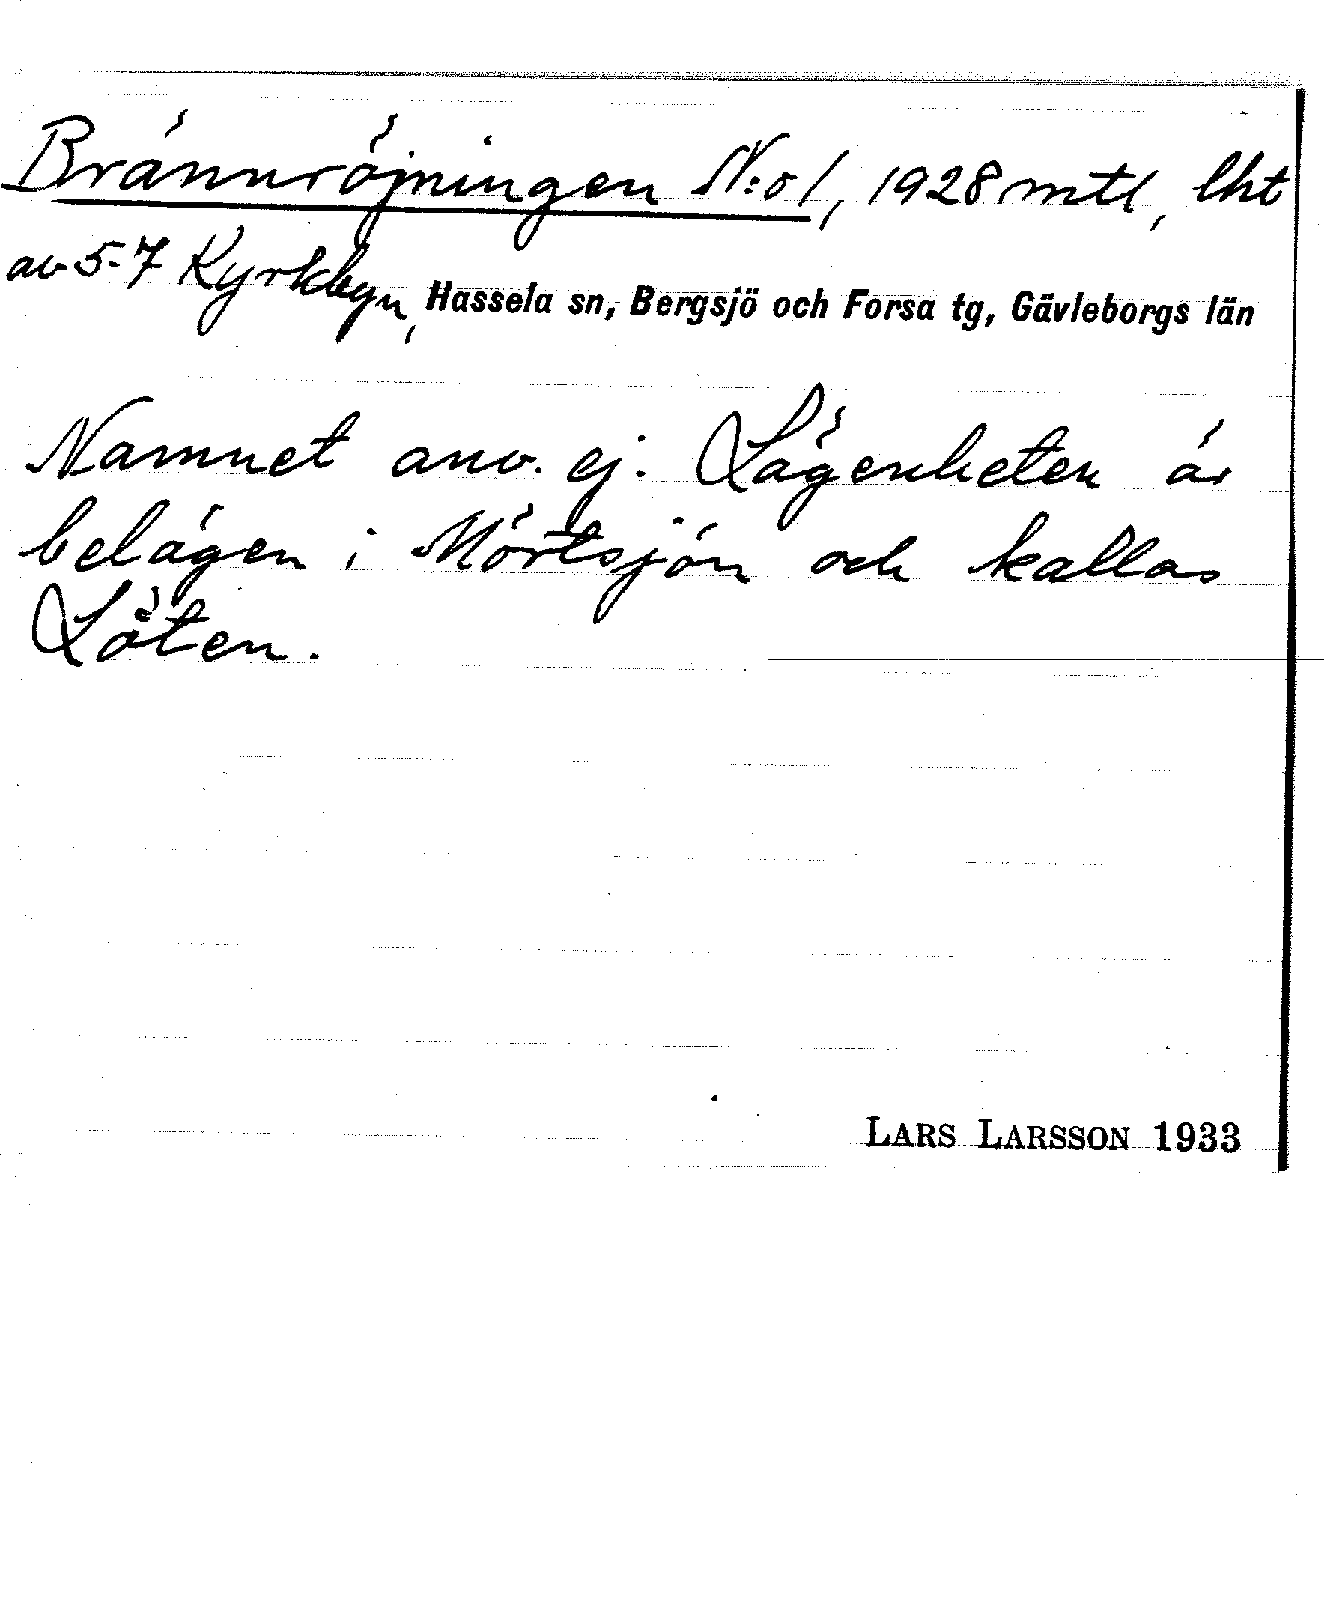 Brännröjningen N:o 1, 1928 mtl, lht
av 5-7 Kyrkbyn, Hassela sn, Bergsjö och Forsa tg, Gävleborgs län
Namnet anv. ej. Lägenheten är
belägen i Mörtsjön och kallas
Låten.
LARS LARSSON 1933